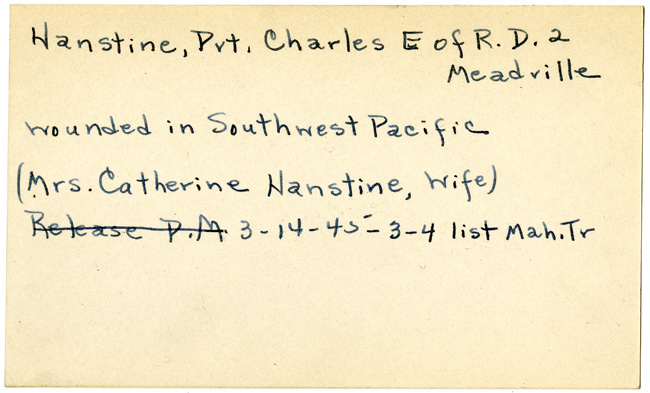 Hanstine, Pvt. Charles E of R.D. 2
Meadville
wounded in Southwest Pacific
(Mrs. Catherine Hanstine, Wife)
Release P.M. 3-14-45- 3-4 list Mah. Tr